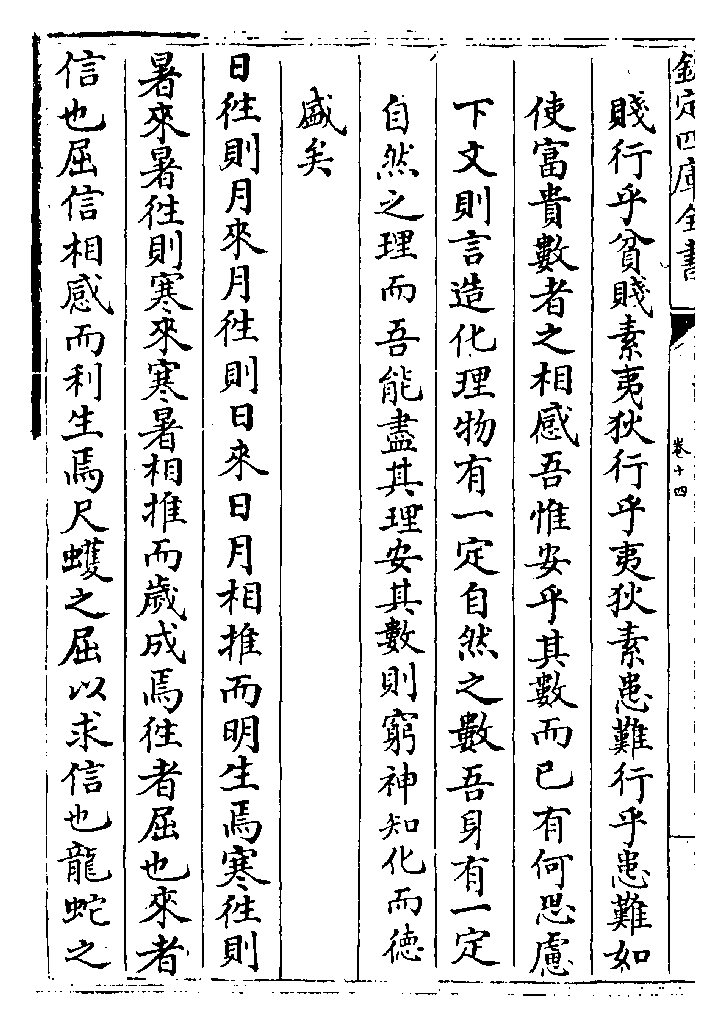 欽定四庫全書
卷十四
賤行乎貧賤素夷狄行乎夷狄素患難行乎患難如
使富貴數者之相感吾惟安乎其數而已有何思慮
下文則言造化理物有一定自然之數吾身有一定
自然之理而吾能盡其理安其數則窮神知化而德
盛矣
日徃則月來月徃則日來日月相推而明生焉寒徃則
暑來暑徃則寒來寒暑相推而歲成焉徃者屈也來者
信也屈信相感而利生焉尺蠖之屈以求信也龍蛇之